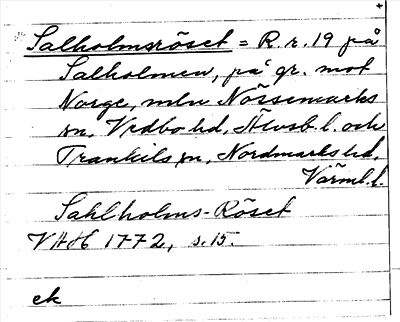 +
Salholmsröset = R. r. 19 på
Salholmen, på gr. mot
Norge, mln Nössemarks
sn, Vedbo hd, Älvsb. l. och
Trankils sn, Nordmarks hd,
Värml. l.
Sahlholms-Röset
VHH 1772, s. 15.
ek